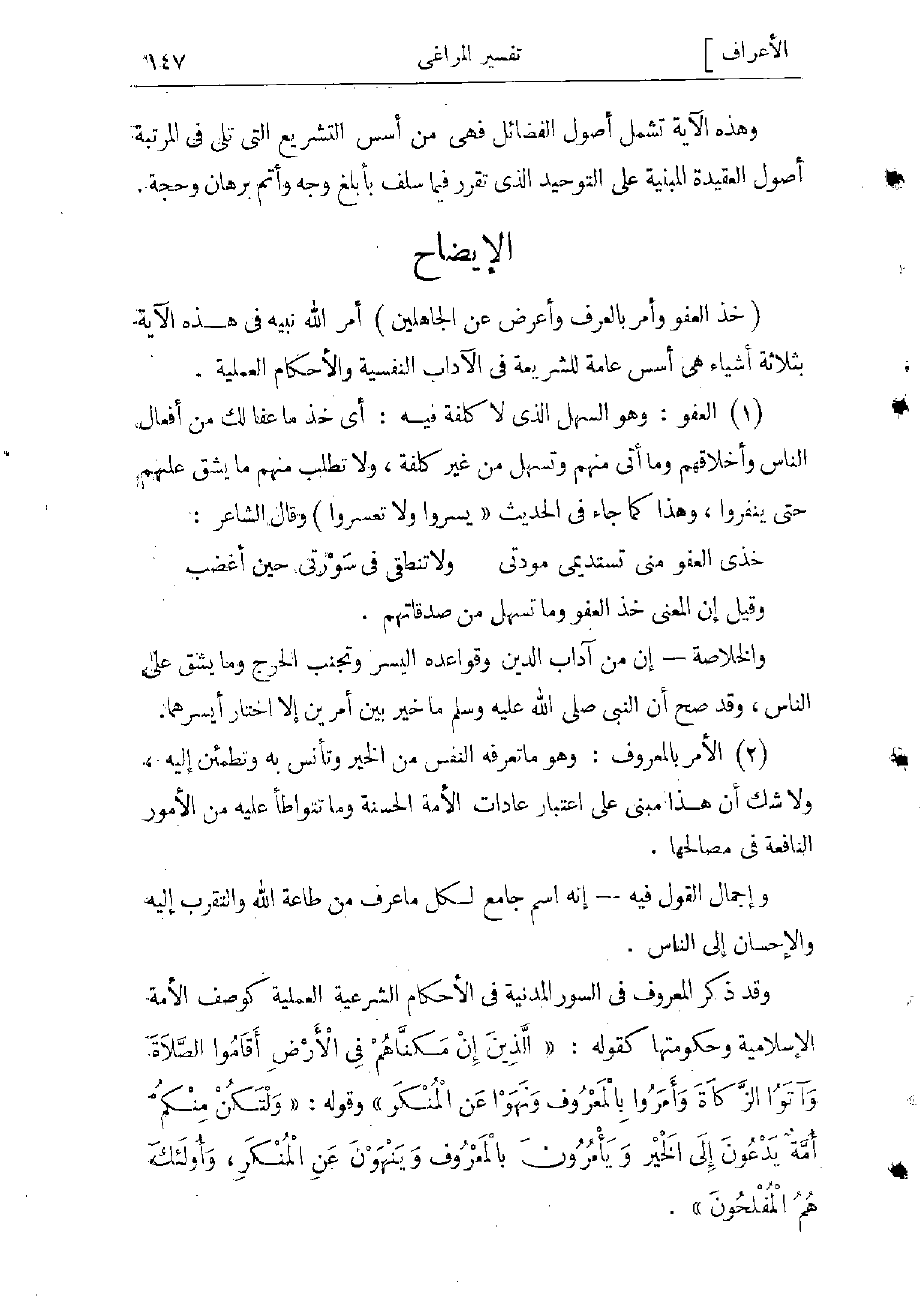 الأعراف ]
تفسير المراغى
١٤٧
وهذه الآية تشمل أصول الفضائل فهى من أسس التشريع التى تلى فى المرتبة
أصول العقيدة المبنية على التوحيد الذى تقرر فيما سلف بأبلغ وجه وأتم برهان وحجة .
الإيضاح
( خذ العفو وأمر بالعرف وأعرض عن الجاهلين ) أمر الله نبيه فى هــذه الآية
بثلاثة أشياء هى أسس عامة للشريعة فى الآداب النفسية والأحكام العملية .
(١) العفو : وهو السهل الذى لا كلفة فيــه : أى خذ ما عفا لك من أفعال
الناس وأخلاقهم وما أتى منهم وتسهل من غير كلفة ، ولا تطلب منهم ما يشق عليهم
حتى ينفروا ، وهذا كما جاء فى الحديث « يسروا ولا تعسروا ) وقال الشاعر :
خذى العفو منى تستديمى مودتى ولا تنطقى فى سَوْرتى حين أغضب
وقيل إن المعنى خذ العفو وما تسهل من صدقاتهم .
والخلاصة — إن من آداب الدين وقواعده اليسر وتجنب الحرج وما يشق على
الناس ، وقد صح أن النبى صلى الله عليه وسلم ما خير بين أمرين إلا اختار أيسرهما.
(٢) الأمر بالمعروف : وهو ماتعرفه النفس من الخير وتأنس به وتطمئن إليه ،
ولا شك أن هــذا مبنى على اعتبار عادات الأمة الحسنة وما تتواطأ عليه من الأمور
النافعة فى مصالحها .
و إجمال القول فيه — إنه اسم جامع لــكل ماعرف من طاعة الله والتقرب إليه
والإحسان إلى الناس .
وقد ذكر المعروف فى السور المدنية فى الأحكام الشرعية العملية كوصف الأمة
الإسلامية وحكومتها كقوله : « الَّذِينَ إِنْ مَــكنَّاهُمْ فِى الْأَرْضِ أَقَامُوا الصَّلَاةَ
وَآتَوُا الزَّكَاةَ وَأَمَرُوا بِالْمَعْرُوفِ وَنَهَوْا عَنِ الْمُنْــكَرِ » وقوله : « وَلْتَــكُنْ مِنْــكُمْ
أُمَّةٌ يَدْعُونَ إِلَى الْخَيْرِ وَيَأْمُرُونَ بِالْمَعْرُوفِ وَيَنْهَوْنَ عَنِ الْمُنْــكَرِ ، وَأُولَئِكَ
هُمُ الْمُفْلِحُونَ » .